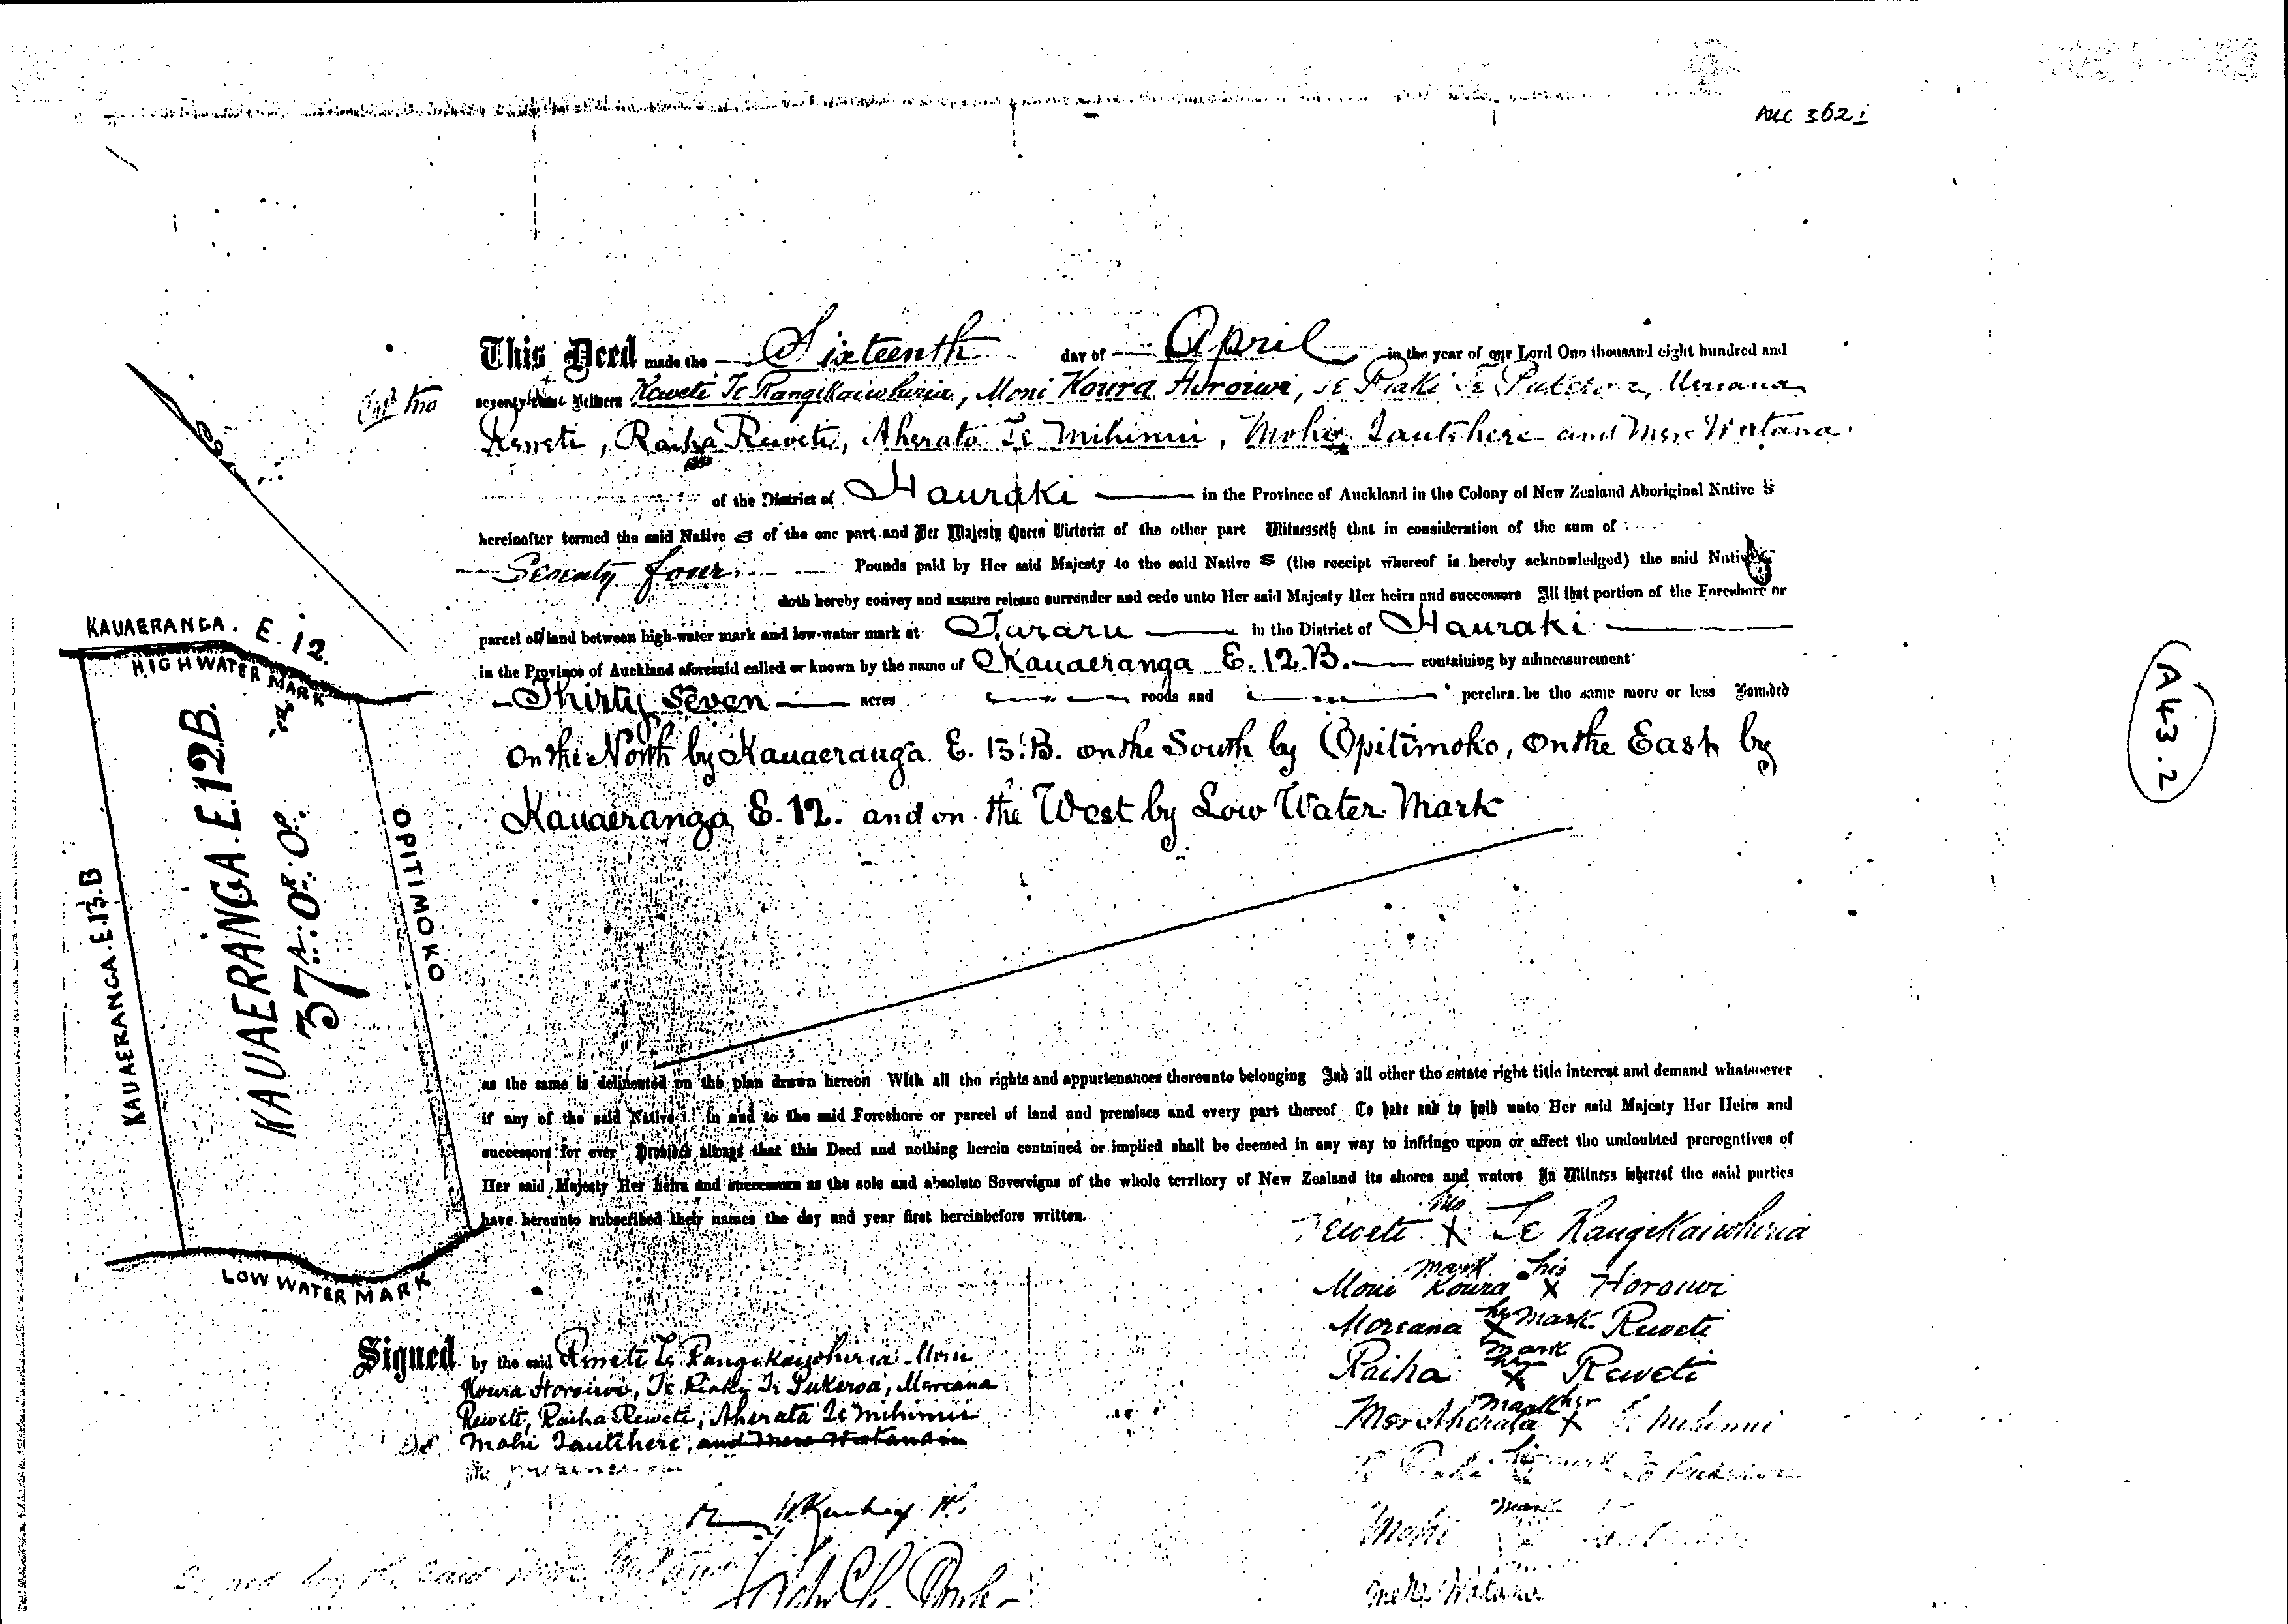 AKC 362 i
This Deed made the Sixteenth day of April in the year of our Lord One thousand eight hundred and
seventy Between Reweti Te Rangikaiwhiria, Moni Koura Horoiwi, Te Piaki Te Pukeroa, Mereana
Reweti, Raiha Reweti, Aherata Te Mihinui, Mohi Tautehere and Mere Watana
of the District of Hauraki in the Province of Auckland in the Colony of New Zealand Aboriginal Native s
hereinafter termed the said Native s of the one part and Her Majesty Queen Victoria of the other part Witnesseth that in consideration of the sum of
Seventy four Pounds paid by Her said Majesty to the said Native s (the receipt whereof is hereby acknowledged) the said Natives
doth hereby convey and assure release surrender and cede unto Her said Majesty Her heirs and successors All that portion of the Foreshore or
parcel of land between high-water mark and low-water mark at Tararu in the District of Hauraki
in the Province of Auckland aforesaid called or known by the name of Kauaeranga E. 12. B. containing by admeasurement
Thirty Seven acres roods and perches be the same more or less Bounded
On the North by Kauaeranga E. 13. B. on the South by Opitimoko, On the East by
Kauaeranga E. 12. and on the West by Low Water Mark
as the same is delineated on the plan drawn hereon With all the rights and appurtenances thereunto belonging And all other the estate right title interest and demand whatsoever
if any of the said Native in and to the said Foreshore or parcel of land and premises and every part thereof To have and to hold unto Her said Majesty Her Heirs and
successors for ever Provided always that this Deed and nothing herein contained or implied shall be deemed in any way to infringe upon or affect the undoubted prerogatives of
Her said Majesty Her heirs and successors as the sole and absolute Sovereigns of the whole territory of New Zealand its shores and waters In Witness whereof the said parties
have hereunto subscribed their names the day and year first hereinbefore written.
KAUAERANGA. E. 12.
HIGH WATER MARK
KAUAERANGA. E. 12B.
37A. 0R. 0P.
KAUAERANGA. E. 13. B
OPITIMOKO
LOW WATER MARK
Reweti his X mark Te Rangikaiwhiria
Moni Koura his X mark Horoiwi
Mereana her X mark Reweti
Raiha her X mark Reweti
Mere Aherata her X mark Te Mihinui
Te Piaki his mark Te Pukeroa
Mohi
Mere Watana
Signed by the said Reweti Te Rangikaiwhiria Moni
Koura Horoiwi, Te Piaki Te Pukeroa, Mereana
Reweti, Raiha Reweti, Aherata Te Mihinui
Mohi Tautehere, and Mere Watana in
the presence of
Signed by the said Mere Watana
A43.2